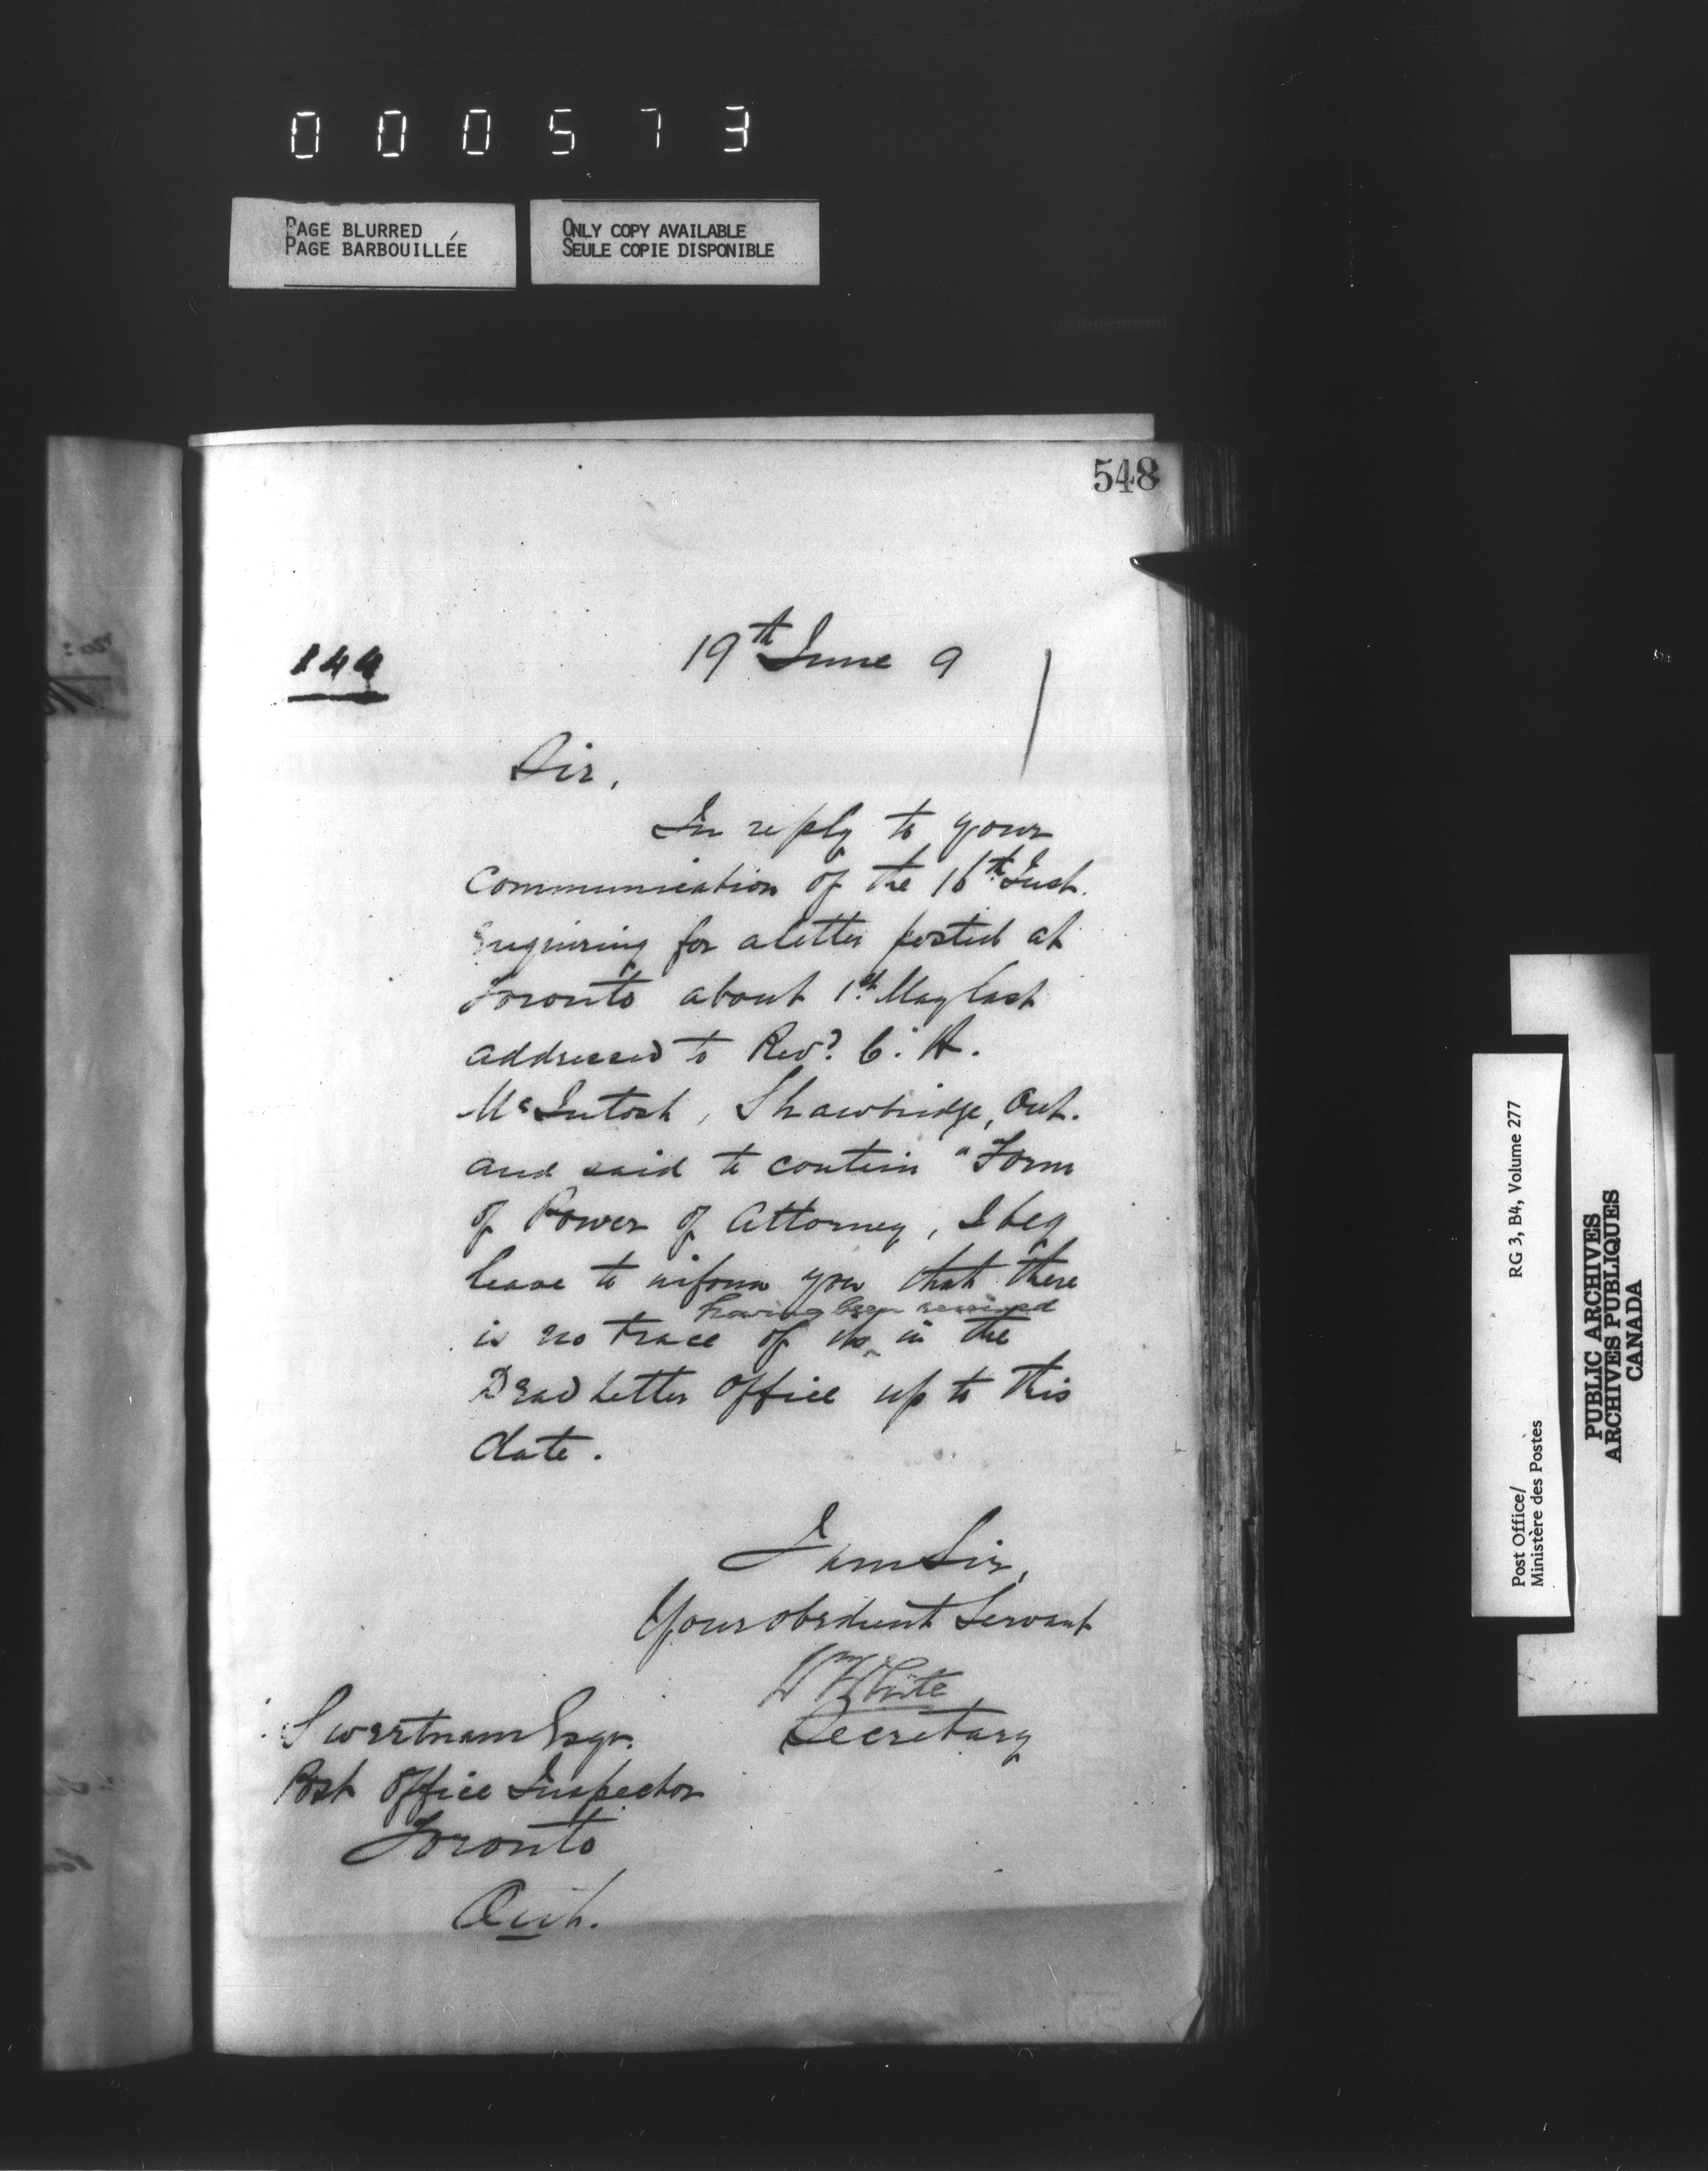 000573
PAGE BLURRED
PAGE BARBOUILLÉE
ONLY COPY AVAILABLE
SEULE COPIE DISPONIBLE
548
144
19th June 9
Sir,
In reply to your
Communication of the 16th Inst.
Enquiring for a letter posted at
Toronto about 1st May last
addressed to Revd. C. H.
McIntosh, Shawbridge, Ont.
and said to contain "Form
of Power of Attorney, I beg
leave to inform you that there
having been received
is no trace of its in the
Dead Letter Office up to this
date.
I am Sir,
Your obedient Servant
Wm White
Secretary
Sweetnam Esqr.
Post Office Inspector
Toronto
Ont.
Post Office/
Ministère des Postes
RG 3, B4, Volume 277
PUBLIC ARCHIVES
ARCHIVES PUBLIQUES
CANADA